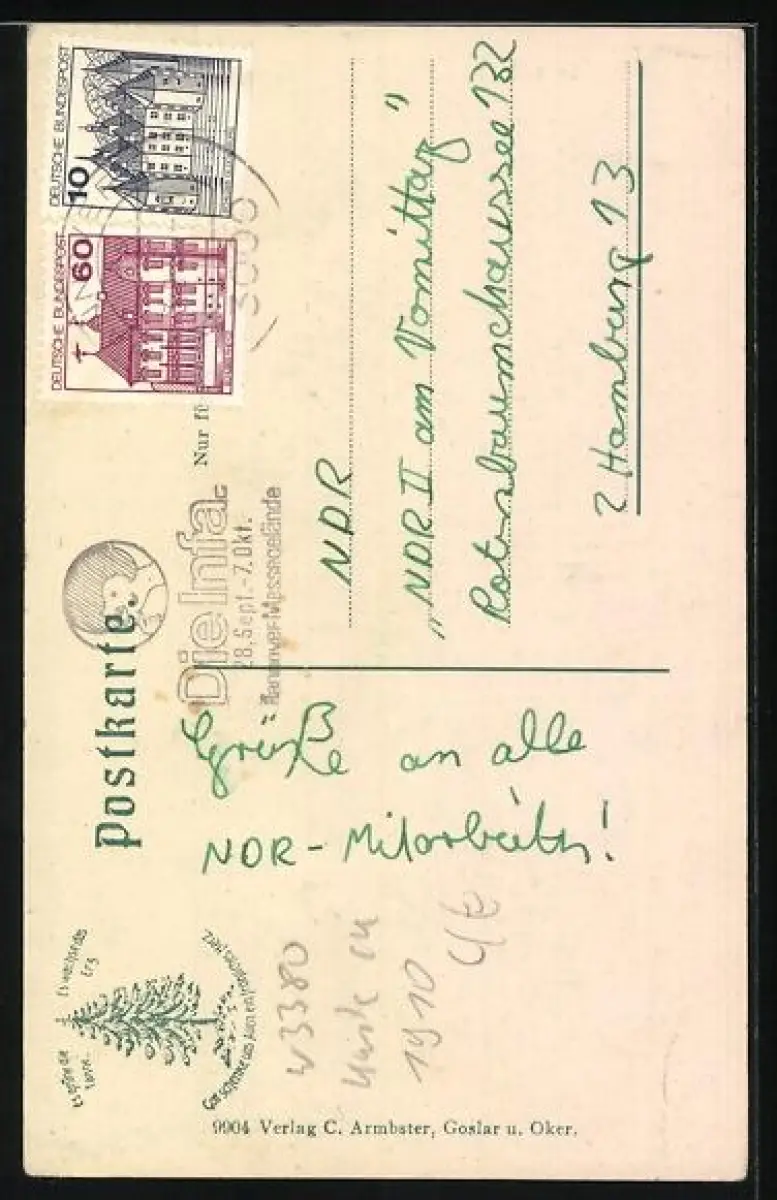 Postkarte.
Nur fü
DEUTSCHE BUNDESPOST
60
DEUTSCHE BUNDESPOST
10
Die Infa
28. Sept. - 7. Okt.
Hannover-Messegelände
Es grüne die
Tanne.
Es wachse das
Erz
Gott schenke uns Allen ein fröhliches
Grüße an alle
NDR - Mitarbeiter!
NDR
"NDR II am Vormittag"
Rotenbaumchaussee 132
2 Hamburg 13
v3380
Karte en
1910
9904 Verlag C. Armbster, Goslar u. Oker.